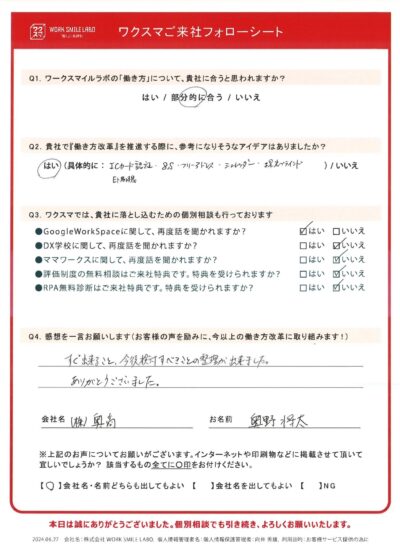 ワクスマ WORK SMILE LABO. ワクスマご来社フォローシート
Q1. ワークスマイルラボの「働き方」について、貴社に合うと思われますか?
はい / 部分的に合う / いいえ
Q2. 貴社で『働き方改革』を推進する際に、参考になりそうなアイデアはありましたか?
はい (具体的に: ICカード認証・8S・フリーアドレス・シュレッダー・ ) / いいえ
Q3. ワクスマでは、貴社に落とし込むための個別相談も行っております
●GoogleWorkSpaceに関して、再度話を聞かれますか? ☑はい □いいえ
●DX学校に関して、再度話を聞かれますか? □はい ☑いいえ
●ママワークスに関して、再度話を聞かれますか? □はい ☑いいえ
●評価制度の無料相談はご来社特典です。特典を受けられますか? □はい ☑いいえ
●RPA無料診断はご来社特典です。特典を受けられますか? □はい ☑いいえ
Q4. 感想を一言お願いします(お客様の声を励みに、今以上の働き方改革に取り組みます!)
すぐ出来ること、今後検討すべきことの整理が出来ました。
ありがとうございました。
会社名 (株) 奥高 お名前 奥野 将太
※上記のお声についてお願いがございます。インターネットや印刷物などに掲載させて頂いて
宜しいでしょうか? 該当するもの全てに〇印をお付けください。
【〇】会社名・名前どちらも出してもよい 【 】会社名だけ出してもよい 【 】NG
本日は誠にありがとうございました。個別相談でも引き続き、よろしくお願いいたします。
2024.06.27 会社名:株式会社WORK SMILE LABO. 個人情報管理者名:個人情報保護管理者:向井 利用目的:お客様サービス提供の為に